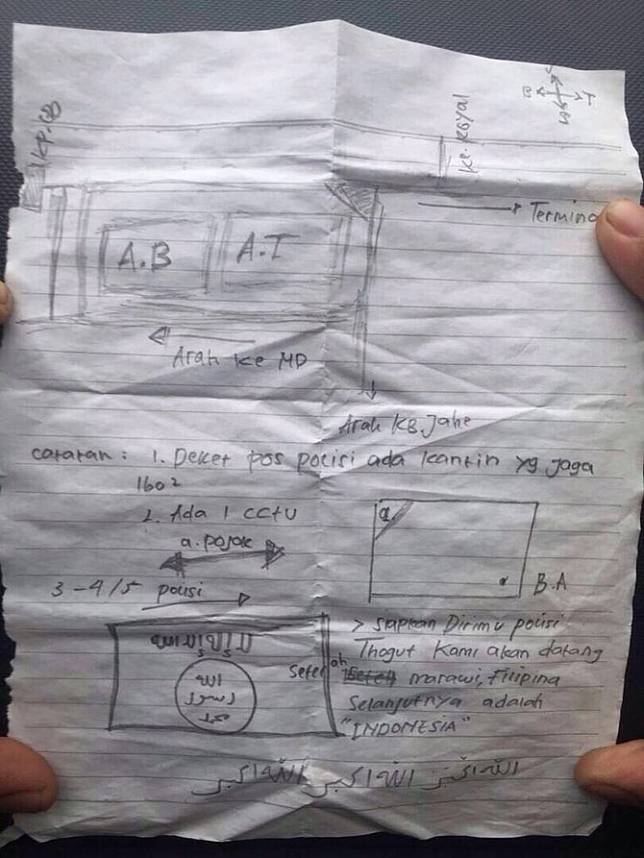 KP.BB
ke. Royal
S
B
T
Termina
A.B
A.I
Arah ke MD
Arah KB. Jahe
catatan : 1. Deket pos polisi ada kantin yg jaga
ibo2
2. Ada 1 CCTV
a. pojok
a.
3 - 4/5 polisi
B.A
لا إله إلا الله
الله
رسول
محمد
> siapkan Dirimu polisi
Thogut Kami akan datang
Setelah marawi, Filipina
Selanjutnya adalah
"INDONESIA"
الله اكبر الله اكبر الله اكبر